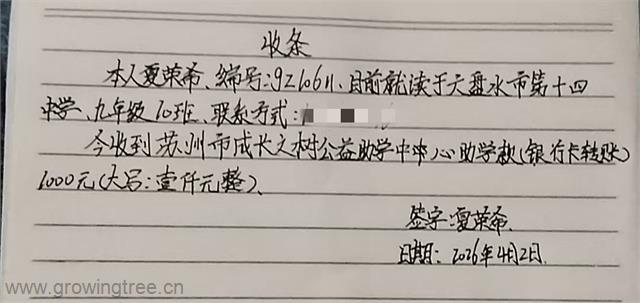 收条
本人夏荣希、编号:9210611、目前就读于六盘水市第十四
中学、九年级10班、联系方式:
今收到苏州市成长之树公益助学中中心助学款(银行卡转账)
1000元(大写:壹仟元整)、
签字:夏荣希
日期:2026年4月2日.
www.growingtree.cn